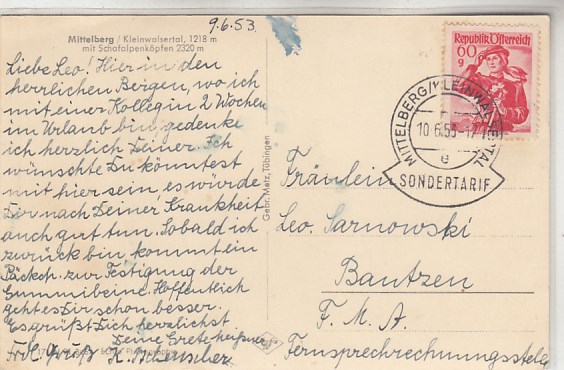 9.6.53.
Mittelberg / Kleinwalsertal, 1218 m
mit Schafalpenköpfen 2320 m
Liebe Leo! Hier in den
herrlichen Bergen, wo ich
mit einer Kollegin 2 Wochen
im Urlaub bin, gedenke
ich herzlich Deiner. Ich
wünschte Du könntest
mit hier sein, es würde
Dir nach Deiner Krankheit
auch gut tun. Sobald ich
zurück bin kommt ein
Päckch. zur Festigung der
Gummibeine. Hoffentlich
geht es Dir schon besser.
Es grüßt Dich herzlichst
Deine Grete
Frdl. Gruß K.
Gebr. Metz, Tübingen
Republik Österreich
60
g
MITTELBERG/KLEINWALSERTAL
10.6.53-17
e
SONDERTARIF
Fräulein
Leo. Sarnowski
Bautzen
F. M. A.
Fernsprechrechnungsstelle